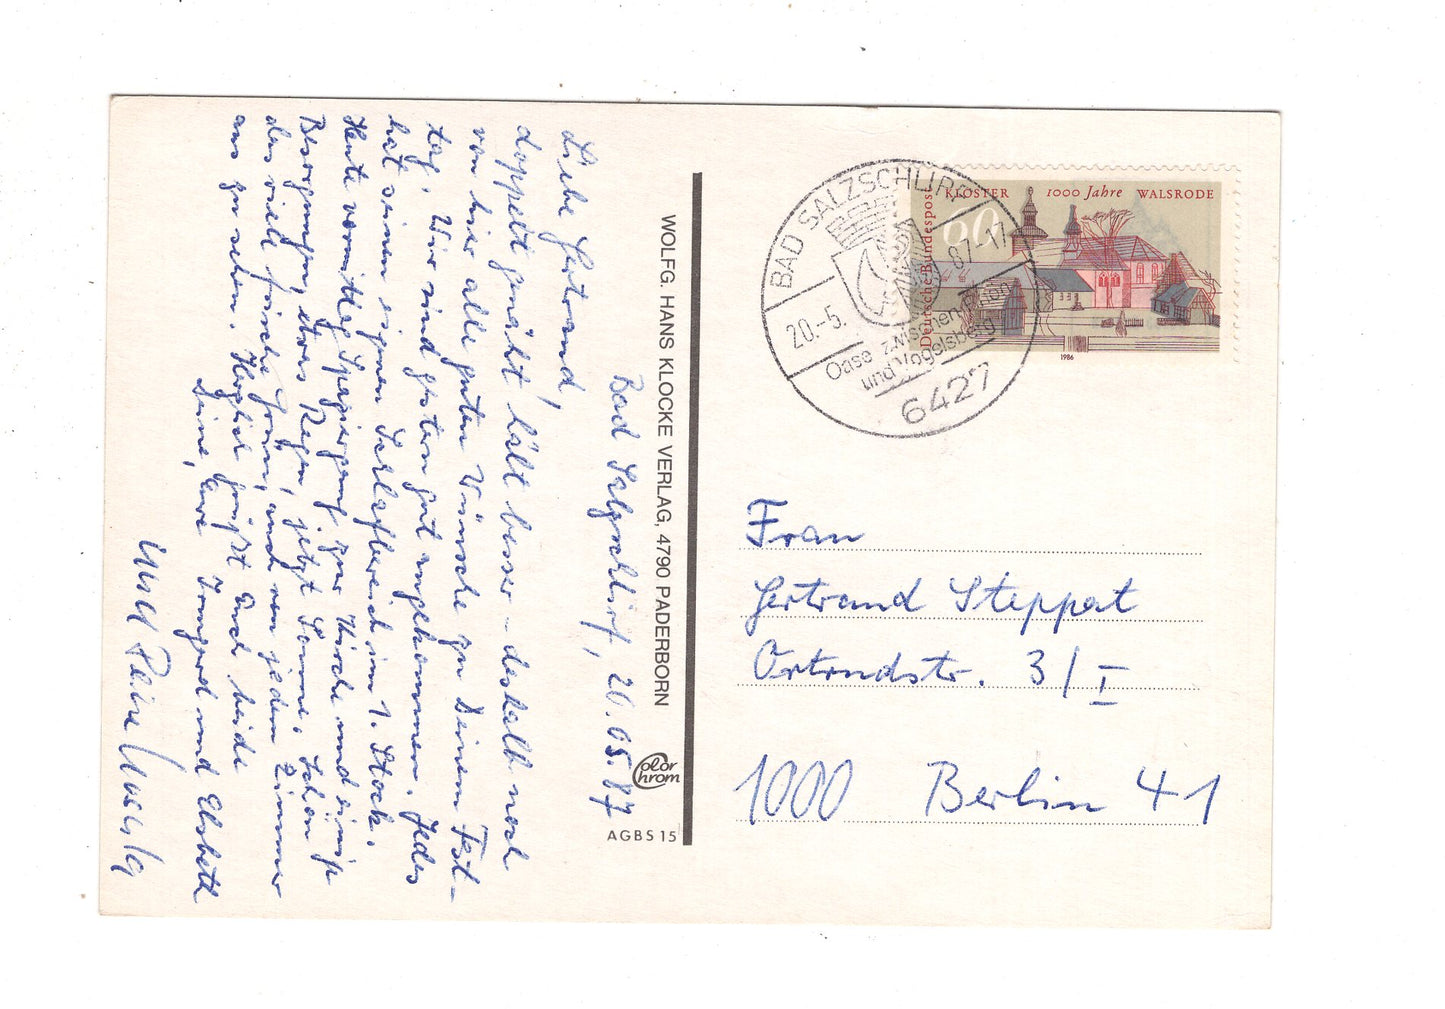 Bad Salzschlirf, 20.05.87
Liebe Gertraud,
doppelt genäht hält besser – deshalb noch
von hier alle guten Wünsche zu Deinem Fest-
tag. Wir sind gestern gut angekommen. Jedes
hat seinen eigenen Schlafbereich im 1. Stock.
Heute vormittag Spaziergang zur Kirche und einige
Besorgungen, etwas Regen, jetzt Sonne. Schön
das viele frische Grün, auch von jedem Zimmer
aus zu sehen. Herzlich grüßt Euch beide
Deine, Eure Irmgard und Elsbeth
WOLFG. HANS KLOCKE VERLAG, 4790 PADERBORN
Color Chrom
AGBS 15
BAD SALZSCHLIRF
20.-5. 87-17
Oase zwischen Rhön
und Vogelsberg
6427
KLOSTER 1000 Jahre WALSRODE
60
Deutsche Bundespost
1986
Frau
Gertraud Steppat
Ortrudstr. 3/I
1000 Berlin 41